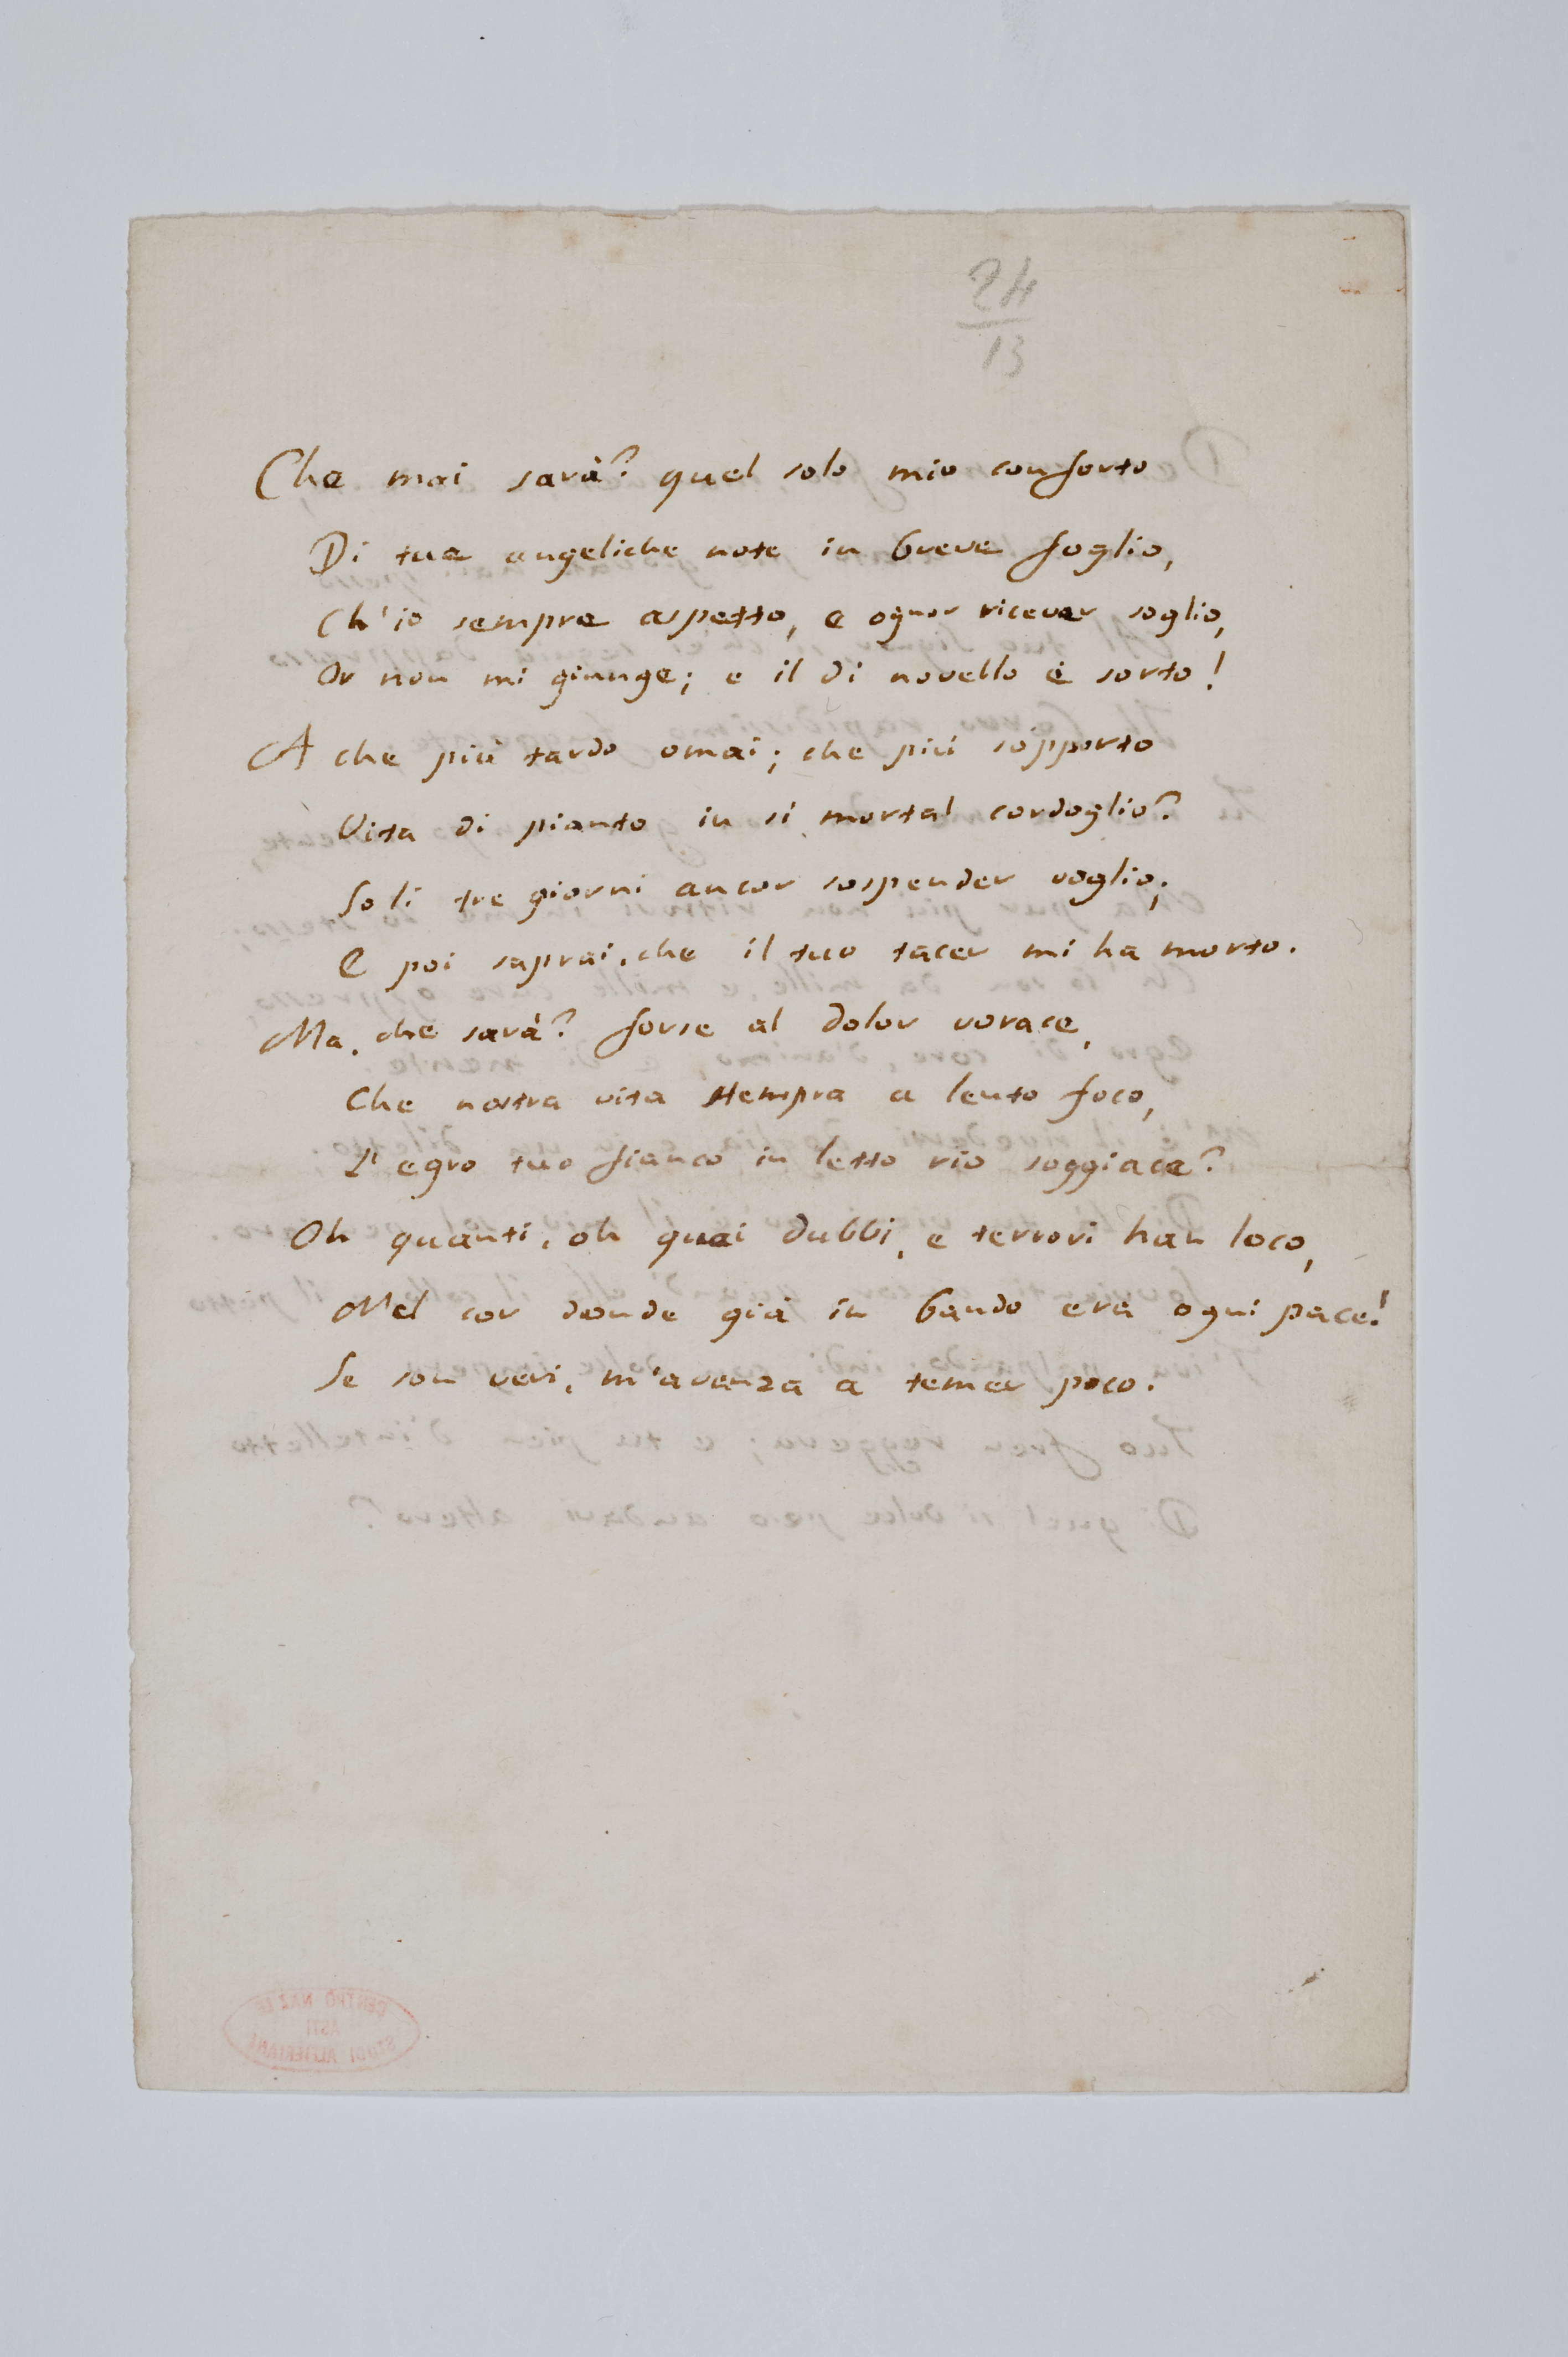 24
13
Che mai sarà? quel solo mio conforto
Di tue angeliche note in breve foglio,
Ch'io sempre aspetto, e ognor ricever soglio,
Or non mi giunge; e il dì novello è sorto!
A che più tardo omai; che più sopporto
Vita di pianto in sì mortal cordoglio?
Soli tre giorni ancor sospender voglio;
E poi saprai, che il tuo tacer mi ha morto.
Ma, che sarà? forse al dolor vorace,
Che nostra vita stempra a lento foco,
L'egro tuo fianco in letto rio soggiace?
Oh quanti, oh quai dubbi, e terrori han loco,
Nel cor donde già in bando era ogni pace!
Se son veri, m'avanza a temer poco.
CENTRO NAZ. LE
ASTI
STUDI ALFIERIANI